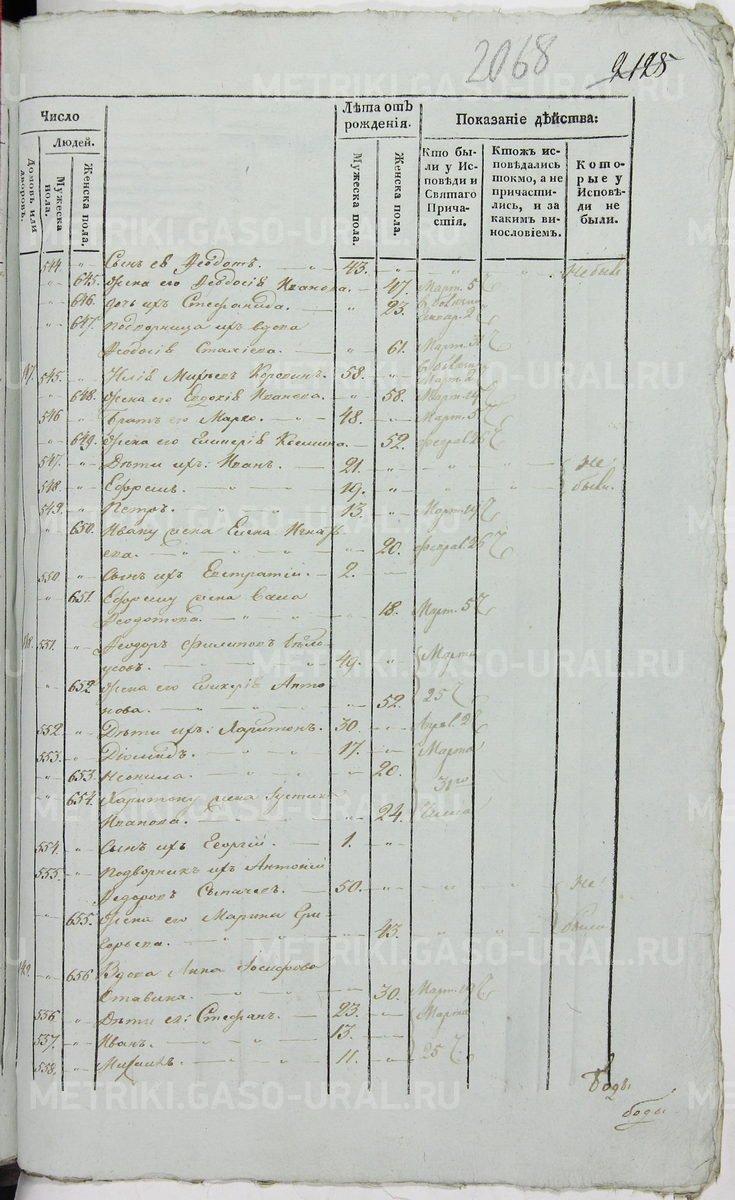 2068
2128
Число
Людей.
Домовъ или дворовъ.
Мужеска пола.
Женска пола.
Лѣта отъ рожденія.
Мужеска пола.
Женска пола.
Показаніе дѣйства:
Кто были у Исповѣди и Святаго Причастія.
Ктожъ исповѣдались токмо, а не причастились, и за какимъ винословіемъ.
Которые у Исповѣди не были.
544. Сынъ ея Ѳеодотъ. 43. Не былъ
645. Жена его Ѳеодосія Иванова. 47. Март. 5
646. дочь ихъ Стефанида. 23.
647. Подворница ихъ вдова
Ѳеодосія 61. Март.
147. 545. Илія 58.
648. Жена его Евдокія Иванова. 58. Март. 19
546 Братъ его Марко. 48. Март. 5
649. Жена его Гликерія Козмина. 52. Феврал. 26
547. Дѣти ихъ: Иванъ. 21. Не
548. Ефремъ. 19. были.
549. Петръ. 13. Март. 19
650. Ивану жена Елена
ева. 20. Феврал. 26
550 Сынъ ихъ Евстратій. 2.
651. Ефрему жена
Ѳеодотова. 18. Март. 5
148. 551. Ѳеодоръ Филиповъ Бѣло
усовъ. 49. Марта
652 Жена его Гликерія Анто
нова. 52. 25
552. Дѣти ихъ: Харитонъ. 30. Апрѣл. 2
553. Діомидъ. 17. Марта
653. Неонила. 20. 3го
654. Харитону жена Іустин
Иванова. 24. Числа
554. Сынъ ихъ Георгій. 1.
555. Подворникъ ихъ Антоній
Ѳедоровъ Сыпачевъ. 50. Не
655. Жена его Марина Гри
горьева. 43. были
149. 656 Вдова Анна Іосифова
Ставина. 30. Март. 19
556 Дѣти ея: Стефанъ. 23. Марта
557. Иванъ. 13.
558. Михаилъ. 11. 25
METRIKI.GASO-URAL.RU